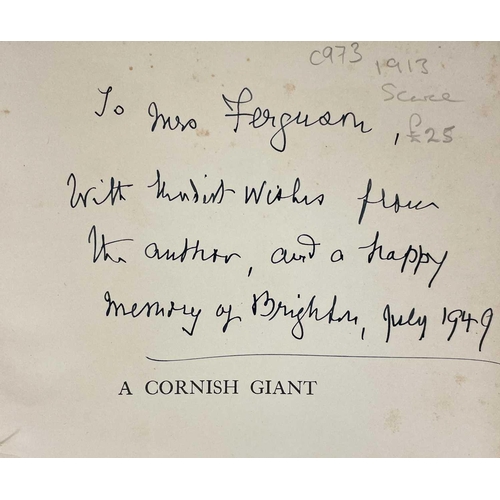 C973 1913
Scarce
£25
To Mrs Ferguson,
With kindest wishes from
the author, and a happy
memory of Brighton, July 1949
A CORNISH GIANT